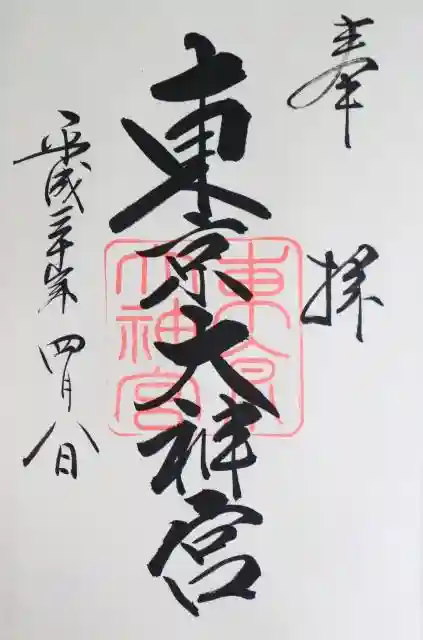 奉拝
東京大神宮
東京
大神宮
平成三十年四月八日